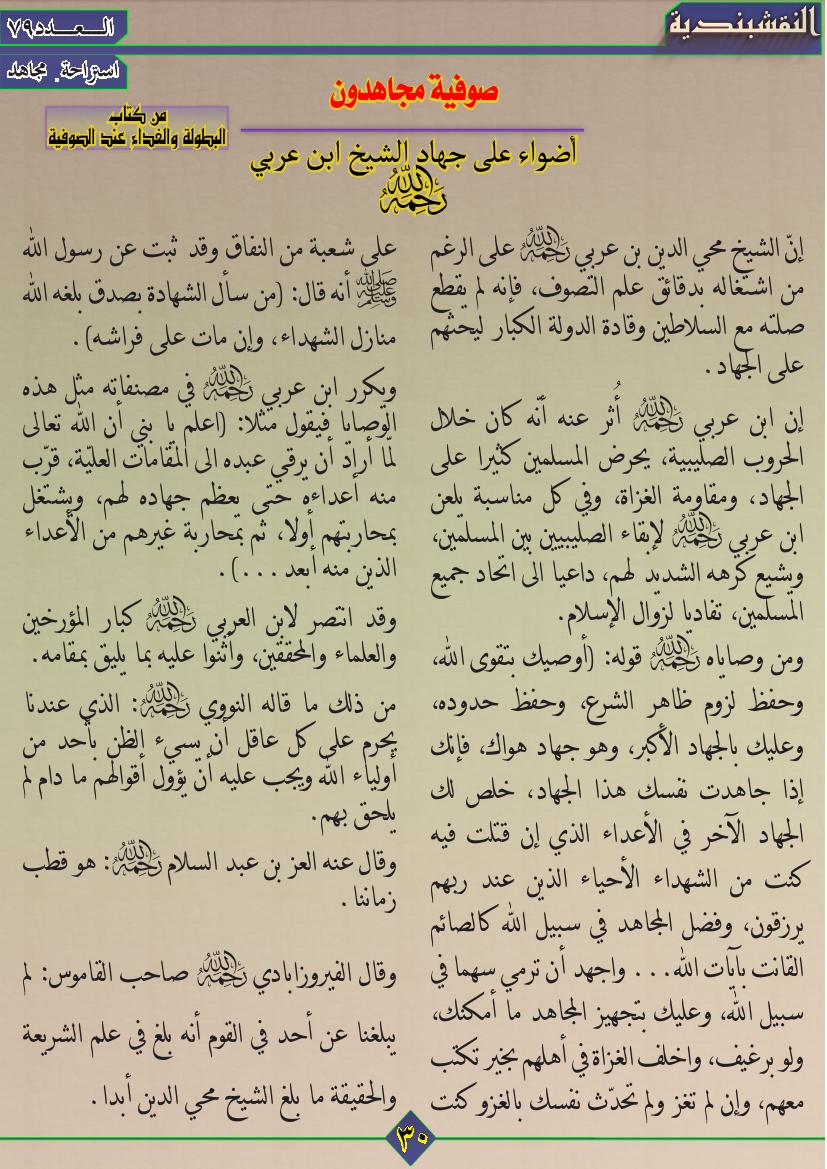 النقشبندية
العدد ٧٩
استراحة. مجاهد
صوفية مجاهدون
من كتاب
البطولة والفداء عند الصوفية
أضواء على جهاد الشيخ ابن عربي
رحمه الله
إنّ الشيخ محي الدين بن عربي رحمه الله على الرغم
من اشتغاله بدقائق علم التصوف، فإنه لم يقطع
صلته مع السلاطين وقادة الدولة الكبار ليحثهم
على الجهاد.
إن ابن عربي رحمه الله أُثر عنه أنّه كان خلال
الحروب الصليبية، يحرض المسلمين كثيرا على
الجهاد، ومقاومة الغزاة، وفي كل مناسبة يلعن
ابن عربي رحمه الله لإبقاء الصليبيين بين المسلمين،
ويشيع كرهه الشديد لهم، داعيا الى اتحاد جميع
المسلمين، تفاديا لزوال الإسلام.
ومن وصاياه رحمه الله قوله: (أوصيك بتقوى الله،
وحفظ لزوم ظاهر الشرع، وحفظ حدوده،
وعليك بالجهاد الأكبر، وهو جهاد هواك، فإنك
إذا جاهدت نفسك هذا الجهاد، خلص لك
الجهاد الآخر في الأعداء الذي إن قتلت فيه
كنت من الشهداء الأحياء الذين عند ربهم
يرزقون، وفضل المجاهد في سبيل الله كالصائم
القانت بآيات الله... واجهد أن ترمي سهما في
سبيل الله، وعليك بتجهيز المجاهد ما أمكنك،
ولو برغيف، واخلف الغزاة في أهلهم بخير تكتب
معهم، وإن لم تغز ولم تحدّث نفسك بالغزو كنت
على شعبة من النفاق وقد ثبت عن رسول الله
صلى الله عليه وسلم أنه قال: (من سأل الشهادة بصدق بلغه الله
منازل الشهداء، وإن مات على فراشه).
ويكرر ابن عربي رحمه الله في مصنفاته مثل هذه
الوصايا فيقول مثلا: (اعلم يا بني أن الله تعالى
لمّا أراد أن يرقي عبده الى المقامات العليّة، قرّب
منه أعداءه حتى يعظم جهاده لهم، ويشتغل
بمحاربتهم أولا، ثم بمحاربة غيرهم من الأعداء
الذين منه أبعد ...).
وقد انتصر لابن العربي رحمه الله كبار المؤرخين
والعلماء والمحققين، وأثنوا عليه بما يليق بمقامه.
من ذلك ما قاله النووي رحمه الله: الذي عندنا
يحرم على كل عاقل أن سيء الظن بأحد من
أولياء الله ويجب عليه أن يؤول أقوالهم ما دام لم
يلحق بهم.
وقال عنه العز بن عبد السلام رحمه الله: هو قطب
زماننا.
وقال الفيروزابادي رحمه الله صاحب القاموس: لم
يبلغنا عن أحد في القوم أنه بلغ في علم الشريعة
والحقيقة ما بلغ الشيخ محي الدين أبدا.
٣٠